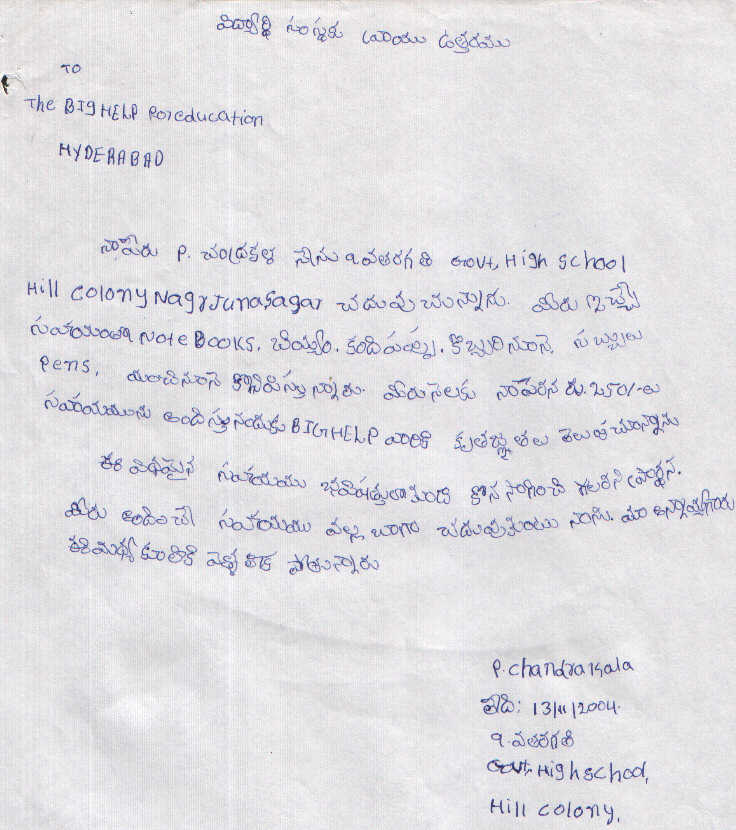 విద్యార్థి సంస్థకు వ్రాయు ఉత్తరము
TO
The BIGHELP Foreducation
HYDERABAD
నాపేరు P. చంద్రకళ నేను 9 వతరగతి Govt, High school
Hill colony Nagrjunasagar చదువుచున్నాను. మీరు ఇచ్చే
సహాయంతో Note Books, బియ్యం, కందిపప్పు, కొబ్బరినూనె, సబ్బులు
Pens, మంచినూనె కొనిపిస్తున్నారు. మీరు నెలకు నాపేరిన రు. 250/-లు
సహాయమును అందిస్తునందుకు BIGHELP వారికి కృతజ్ఞతలు తెలుపుచున్నాను
ఈ విధమైన సహాయము భవిషత్తులోకుండ కొనసాగించి గలరని ప్రార్థన.
మీరు అందించే సహాయము వల్ల బాగా చదువుకుంటు నాను. మా అన్నయ్యగారు
ఈమధ్య కూలికి వెళ్ళలేక పోతున్నారు
P. Chandrakala
తేది: 13/11/2004.
9. వతరగతి
Govt, High school,
Hill colony,